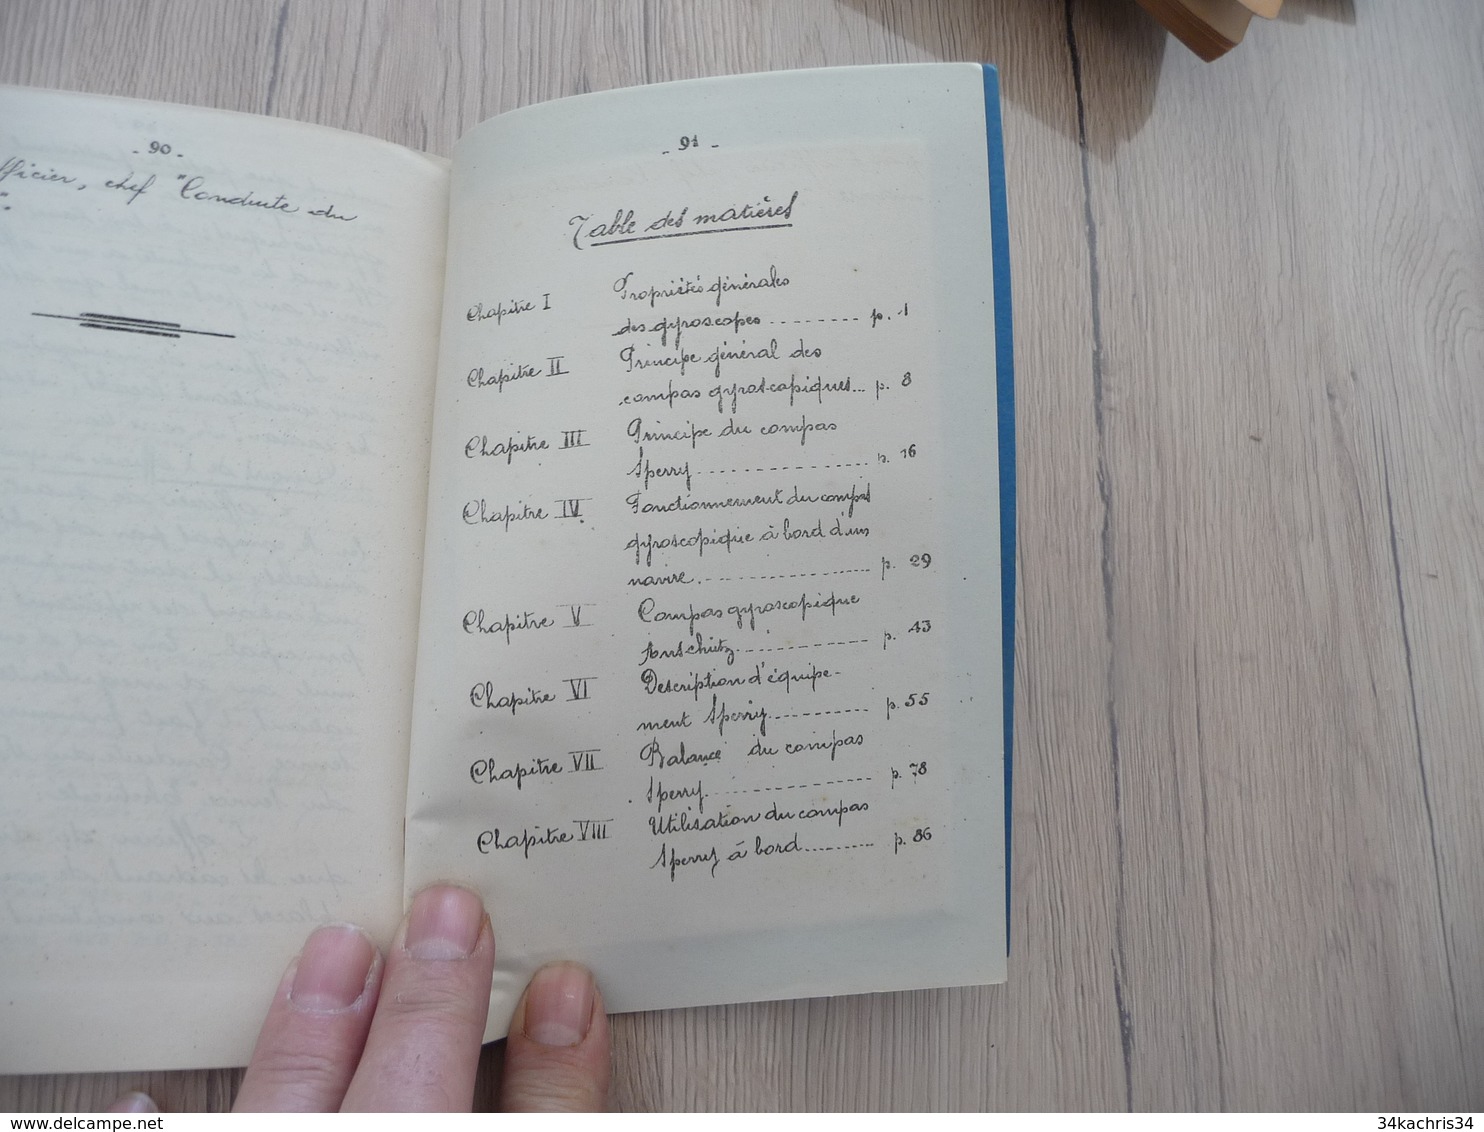 - 90 -
fficier, chef "Conduite du
".
- 91 -
Table des matières
Chapitre I Propriétés générales
des gyroscopes ........ p. 1
Chapitre II Principe général des
compas gyroscopiques... p. 8
Chapitre III Principe du compas
Sperry ................ p. 16
Chapitre IV. Fonctionnement du compas
gyroscopique à bord d'un
navire. ................ p. 29
Chapitre V Compas gyroscopique
Anschütz ............ p. 43
Chapitre VI Description d'équipe-
ment Sperry .......... p. 55
Chapitre VII Balance du compas
Sperry ................ p. 78
Chapitre VIII Utilisation du compas
Sperry à bord .......... p. 86
www.delcampe.net
34kachris34